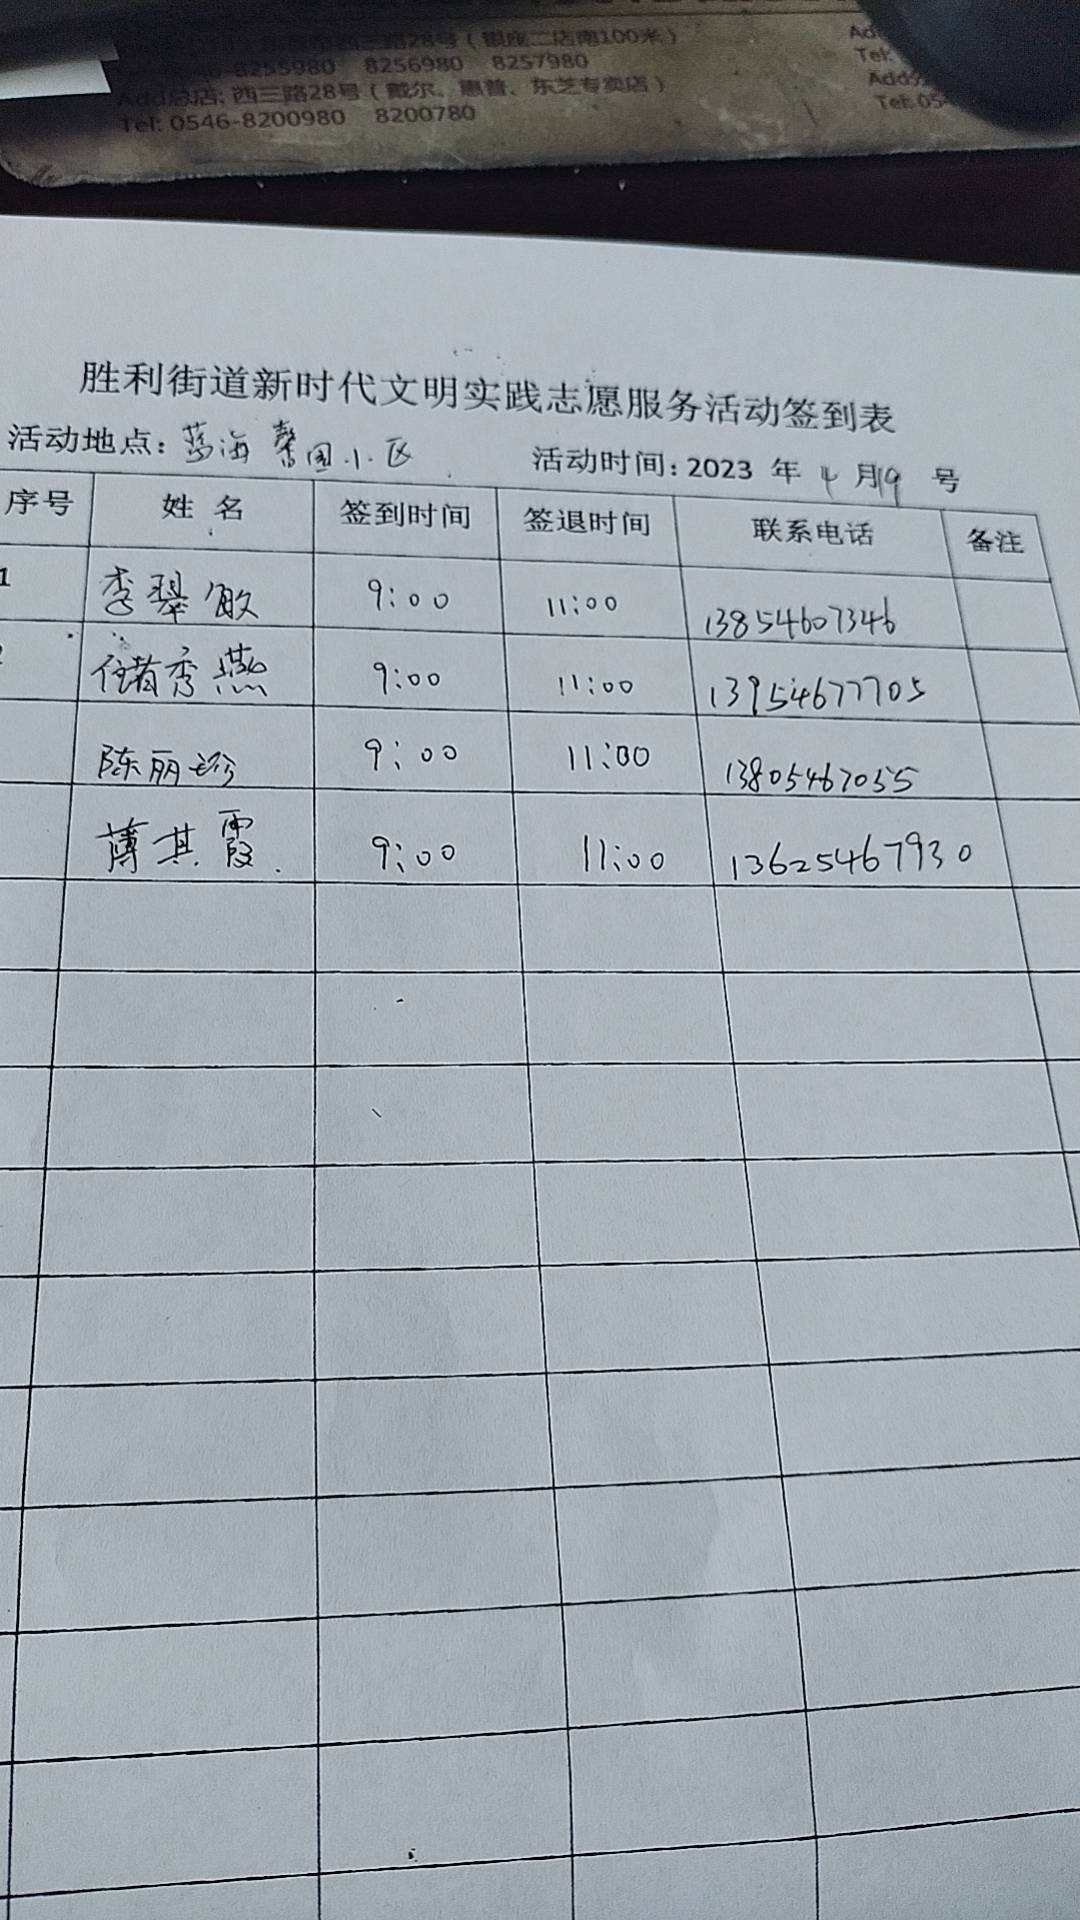 西三路28号（银座二店南100米）
0546-8255980 8256980 8257980
Add总店: 西三路28号（戴尔、惠普、东芝专卖店）
Tel: 0546-8200980 8200780
Tel:
Tel: 054
胜利街道新时代文明实践志愿服务活动签到表
活动地点: 蓝海馨园小区 活动时间: 2023 年 4 月19 号
序号 姓 名 签到时间 签退时间 联系电话 备注
1 李翠敏 9:00 11:00 13854607346
储秀燕 9:00 11:00 13954677705
陈丽珍 9:00 11:00 13805467055
薄其霞 9:00 11:00 13625467930